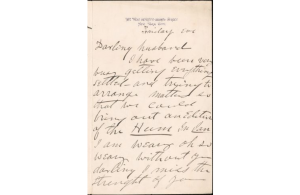 Darling husband
I have been very
busy getting everything
settled and trying to
arrange matters so
that we could
bring out an edition
of the Hume in
I am weary oh so
weary without you
darling I miss the
strength of your